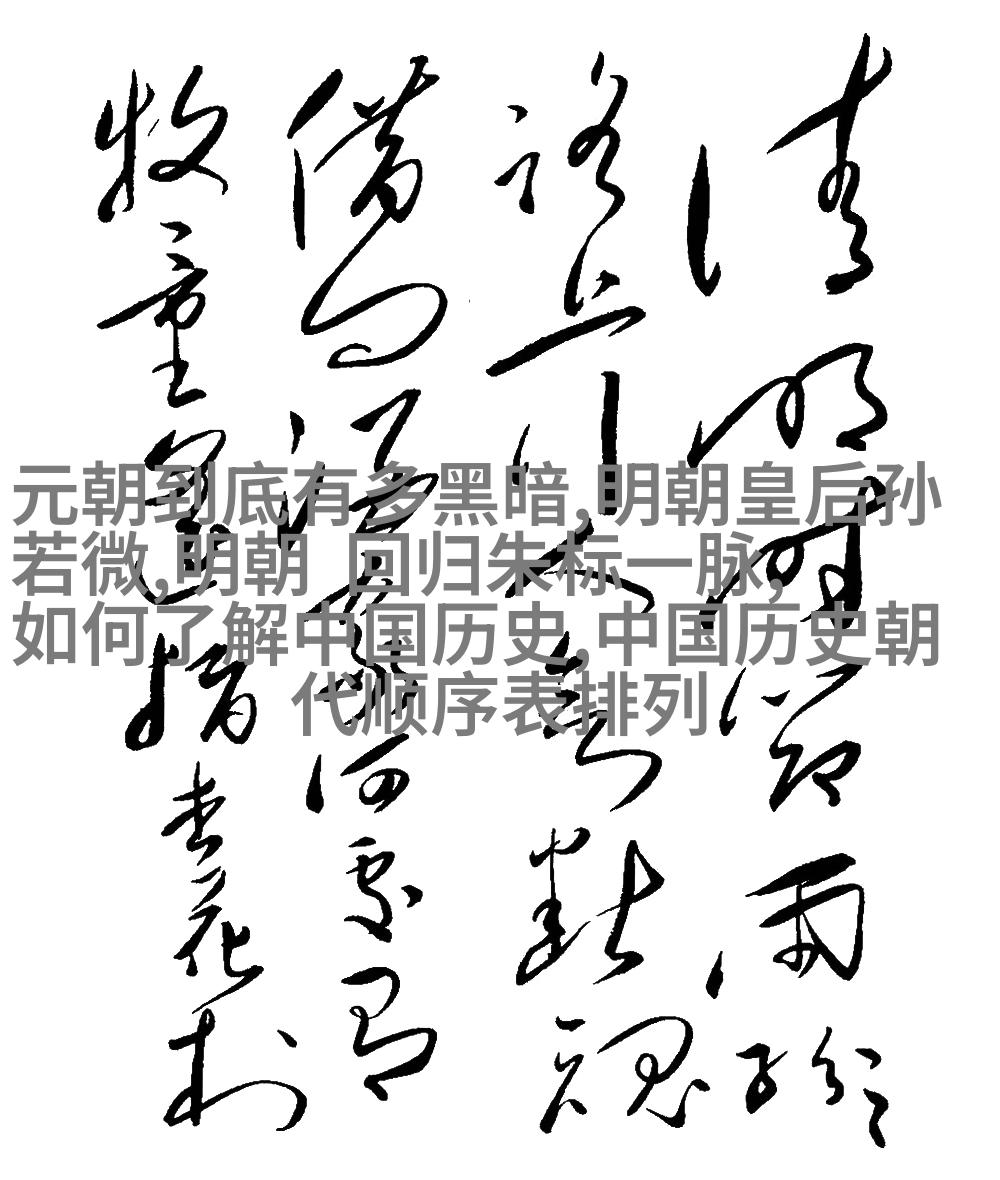 清明時節雨紛紛
路上行人欲斷魂
借问酒家何處有
牧童遥指杏花村
元朝到底有多黑暗,明朝皇后孙
若微,明朝 回归朱标一脉,
如何了解中国历史,中国历史朝
代顺序表排列